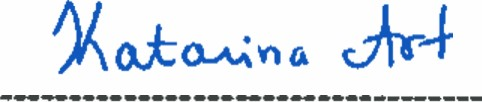 Katarina Art